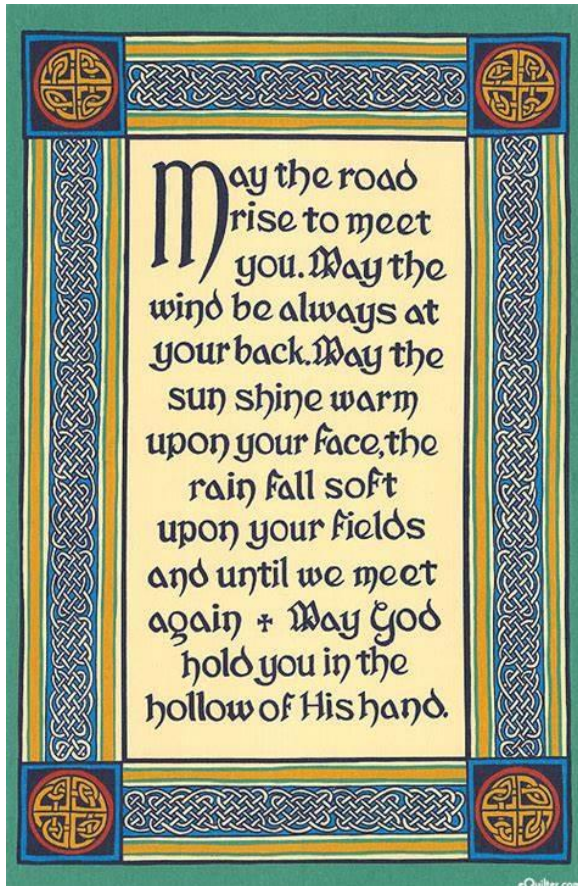 May the road
rise to meet
you. May the
wind be always at
your back. May the
sun shine warm
upon your face, the
rain fall soft
upon your fields
and until we meet
again + May God
hold you in the
hollow of His hand.
eQuilter.com